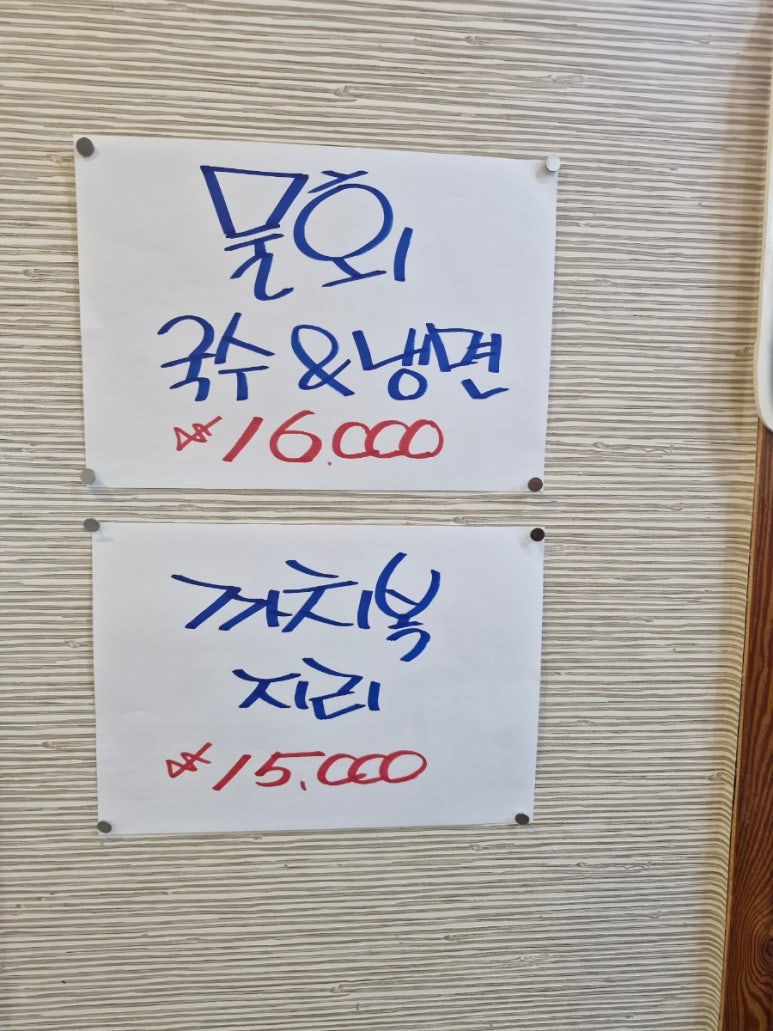 물회
국수 & 냉면
₩16.000
까치복
지리
₩15.000